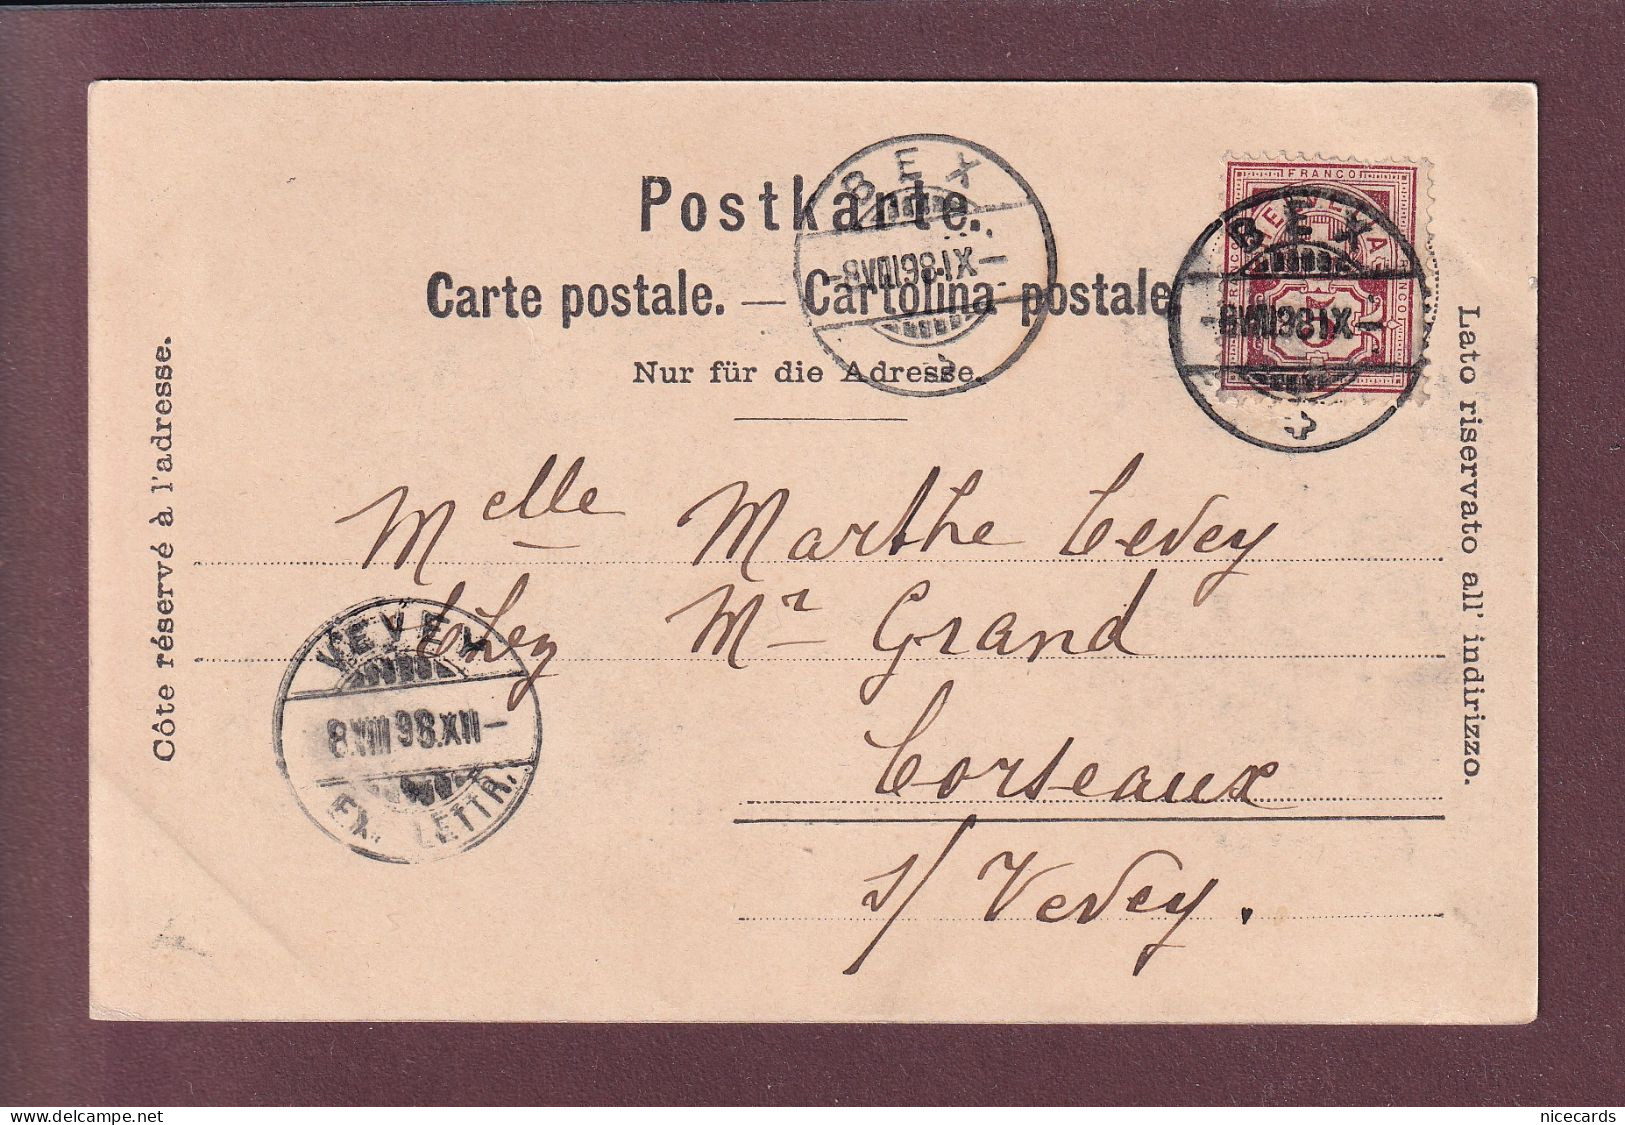 Postkarte.
Carte postale. — Cartolina postale
Nur für die Adresse.
Côte réservé à l'adresse.
Lato riservato all' indirizzo.
BEX
-8.VIII.98.IX-
FRANCO
5
BEX
-8.VIII.98.IX-
Melle Marthe Cevey
Chez Mr Grand
Corseaux
s/ Vevey.
VEVEY
8.VIII.98.XII-
EX. LETTR.
delcampe.net
nicecards